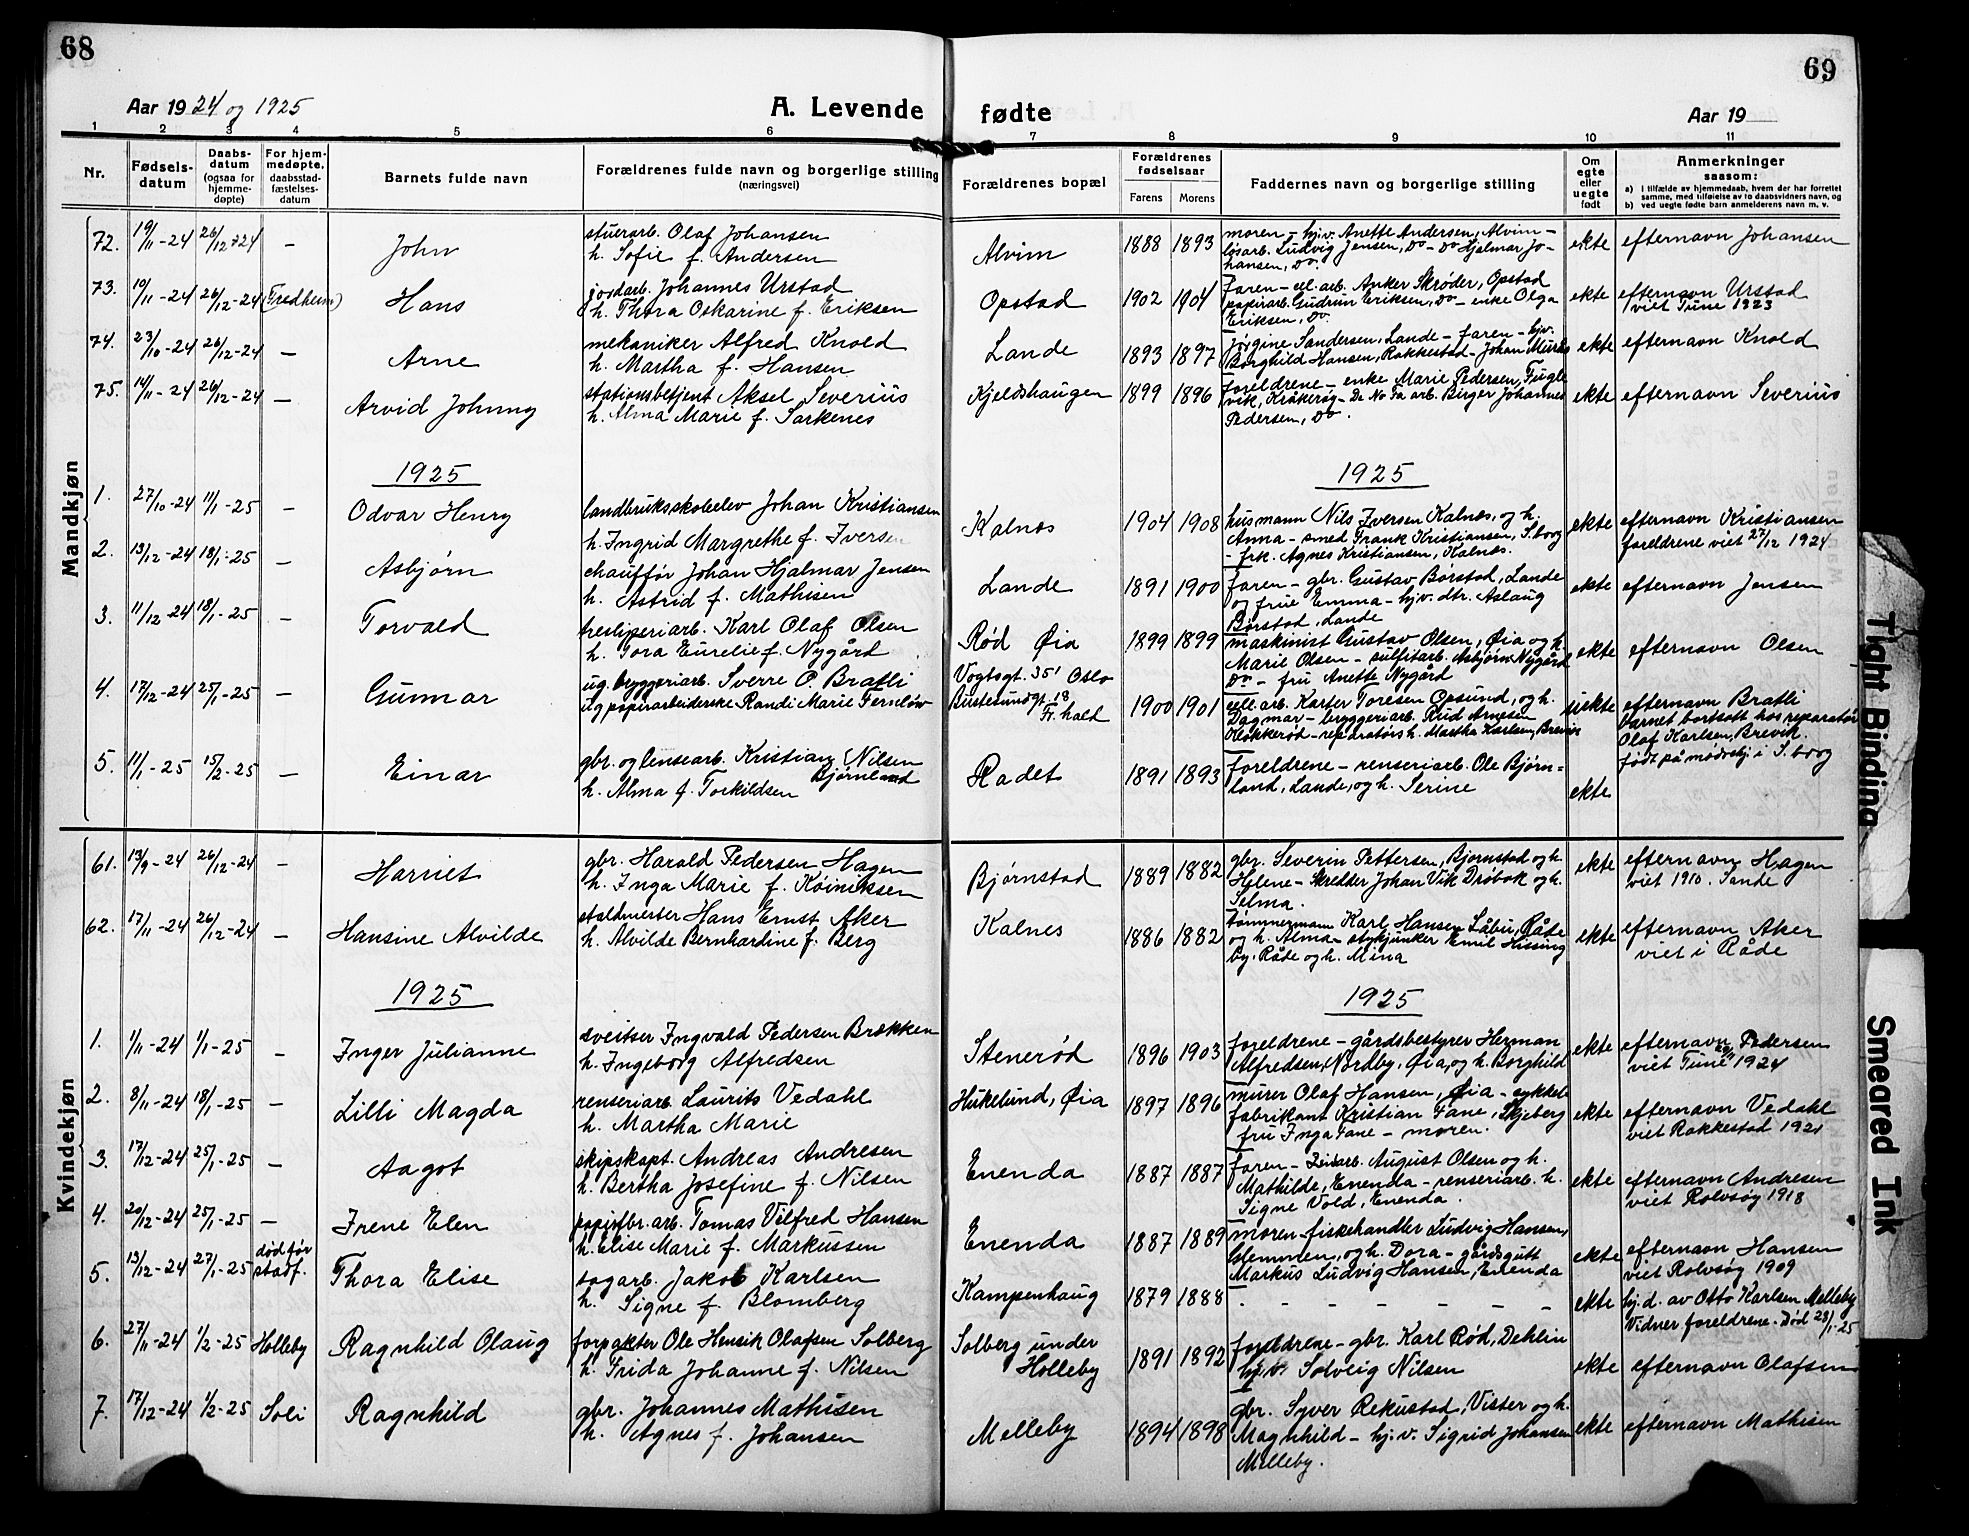 68
69
Aar 1924 og 1925
A. Levende fødte
Aar 19
1 2 3 4 5 6 7 8 9 10 11
Nr.
Fødsels-
datum
Daabs-
datum
(ogsaa for
hjemme-
døpte)
For hjem-
medøpte,
daabsstad-
fæstelses-
datum
Barnets fulde navn
Forældrenes fulde navn og borgerlige stilling
(næringsvei)
Forældrenes bopæl
Forældrenes
fødselsaar
Farens Morens
Faddernes navn og borgerlige stilling
Om
egte
eller
uegte
født
Anmerkninger
saasom:
a) i tilfælde av hjemmedaab, hvem der har forrettet
samme, med tilføielse av to daabsvidners navn, og
b) ved uegte fødte barn anmelderens navn m. v.
Mandkjøn
72. 19/11-24 26/12-24 - John
stuerarb. Olaf Johansen
h. Sofie f. Andersen
Alvim 1888 1893
moren - hj.v. Anette Andersen, Alvim -
løsarb. Ludvig Jensen, Do - Do Hjalmar Jo-
hansen, Do.
ekte efternavn Johansen
73. 19/11-24 26/12-24 (Fredheim) Hans
jordarb. Johannes Urstad
h. Thora Oskarine f. Eriksen
Opstad 1902 1904
faren - cel. arb. Anker Skrøder, Opstad
papirarb. Gudrun Eriksen, Do - enke Olga
Eriksen, Do.
ekte efternavn Urstad
viet Tune 1923
74. 23/10-24 26/12-24 - Arne
mekaniker Alfred Knold
h. Martha f. Hansen
Lande 1893 1897
Jørgine Sandersen, Lande - faren - hjv.
Borghild Hansen, Rakkestad - Johan
ekte efternavn Knold
75. 14/11-24 26/12-24 - Arvid Johnny
stationsbetjent Aksel Severius
h. Alma Marie f. Sarkenes
Kjeldshaugen 1899 1896
foreldrene - enke Marie Pedersen, Fugle
vik, Kråkerøy - arb. Birger Johannes
Pedersen, Do.
ekte efternavn Severius
1925
1925
1. 27/10-24 11/1-25 - Odvar Henry
landbruksskoleelev Johan Kristiansen
h. Ingrid Margrethe f. Iversen
Kalnes 1904 1908
husmann Nils Iversen Kalnes, og h.
Anna - smed Frank Kristiansen, S.borg
- frk. Agnes Kristiansen, Kalnes.
ekte efternavn Kristiansen
foreldrene viet 27/12 1924
2. 13/12-24 18/1-25 - Asbjørn
chauffør Johan Hjalmar Jensen
h. Astrid f. Mathisen
Lande 1891 1900
faren - gbr. Gustav Børstad, Lande
og frue Emma - hj.v. dtr. Aslaug
Børstad, Lande
ekte efternavn Jensen
3. 11/12-24 18/1-25 - Torvald
tresliperiarb. Karl Olaf Olsen
h. Tora Eurelie f. Nygård
Rød Øia 1899 1899
maskinist Gustav Olsen, Øia og h.
Marie Olsen - sulfitarb. Asbjørn Nygård
Do - fru Anette Nygård
ekte efternavn Olsen
4. 17/12-24 25/1-25 - Gunnar
ug. bryggeriarb. Sverre P. Bratli
ug papirarbeiderske Randi Marie Ferneløw
Vogtsgt. 35 Oslo
gt. 18
Fr.hald
1900 1901
cell. arb. Karter Toresen Opsund, og h.
Dagmar - bryggeriarb. Rud Arnesen
Kløkkerød - reparatørs h. Martha Karlsen, Brevik
uekte efternavn Bratli
Barnet bortsatt hos reparatør
Olaf Karlsen, Brevik.
født på mødrehj. i S.borg
5. 11/1-25 15/2-25 - Einar
gbr. og lensearb. Kristian Nilsen
Bjørnland
h. Alma f. Torkildsen
Radet 1891 1893
foreldrene - renseriarb. Ole Bjørn-
land, Lande, og h. Serine
ekte
Kvindekjøn
61. 13/9-24 26/12-24 - Harriet
gbr. Harald Pedersen Hagen
h. Inga Marie f.
Bjørnstad 1889 1882
gbr. Severin Pettersen, Bjørnstad og h.
Helene - Skredder Johan Vik Drøbak og h.
Selma.
ekte efternavn Hagen
viet 1910. Sande
62. 17/11-24 26/12-24 - Hansine Alvilde
staldmester Hans Ernst Aker
h. Alvilde Bernhardine f. Berg
Kalnes 1886 1882
tømmermann Karl Hansen Låbu, Råde
og h. Alma - stykjunker Emil Hissing
by, Råde og h. Mina
ekte efternavn Aker
viet i Råde
1925
1925
1. 1/11-24 1/1-25 - Inger Julianne
sveitser Ingvald Pedersen Brækken
h. Ingeborg Alfredsen
Stenerød 1896 1903
foreldrene - gårdsbestyrer Herman
Alfredsen, Nordby, Øia, og h. Borghild
ekte efternavn Pedersen
viet Tune 1924
2. 8/11-24 18/1-25 - Lilli Magda
renseriarb. Laurits Vedahl
h. Martha Marie
Hukelund, Øia 1897 1896
murer Olaf Hansen, Øia - sykkel
fabrikant Kristian Fane, Skjeberg
fru Inga Fane - moren.
ekte efternavn Vedahl
viet Rakkestad 1921
3. 17/12-24 25/1-25 - Aagot
skipskapt. Andreas Andresen
h. Bertha Josefine f. Nilsen
Enenda 1887 1887
faren - arb. August Olsen og h.
Mathilde, Enenda - renseriarb. h.
Signe Vold, Enenda.
ekte efternavn Andresen
viet Rolvsøy 1918
4. 20/12-24 25/1-25 - Irene Elen
papirfbr. arb. Tomas Vilfred Hansen
h. Elise Marie f. Markussen
Enenda 1887 1889
moren - fiskehandler Ludvig Hansen,
Glemmen, og h. Dora - gårdsgutt
Markus Ludvig Hansen, Enenda
ekte efternavn Hansen
viet Rolvsøy 1909
5. 13/12-24 27/1-25 død før
stadf.
Thora Elise
sagarb. Jakob Karlsen
h. Signe f. Blomberg
Kampenhaug 1879 1888
- - - - - - -
ekte hj.d. av Otto Karlsen Melleby
Vidner foreldrene. Død 28/1-25
6. 27/11-24 1/2-25 Holleby Ragnhild Olaug
forpakter Ole Henrik Olafsen Solberg
h. Frida Johanne f. Nilsen
Solberg under
Holleby
1891 1892
foreldrene - gbr. Karl Rød, Dehlin
hj.v. Solveig Nilsen
ekte efternavn Olafsen
7. 17/12-24 1/2-25 Soli Ragnhild
gbr. Johannes Mathisen
h. Agnes f. Johansen
Melleby 1894 1898
gbr. Syver Rekustad, Vister og h.
Magnhild - hj.v. Sigrid Johansen
Melleby.
ekte efternavn Mathisen
Tight Binding
Smeared Ink